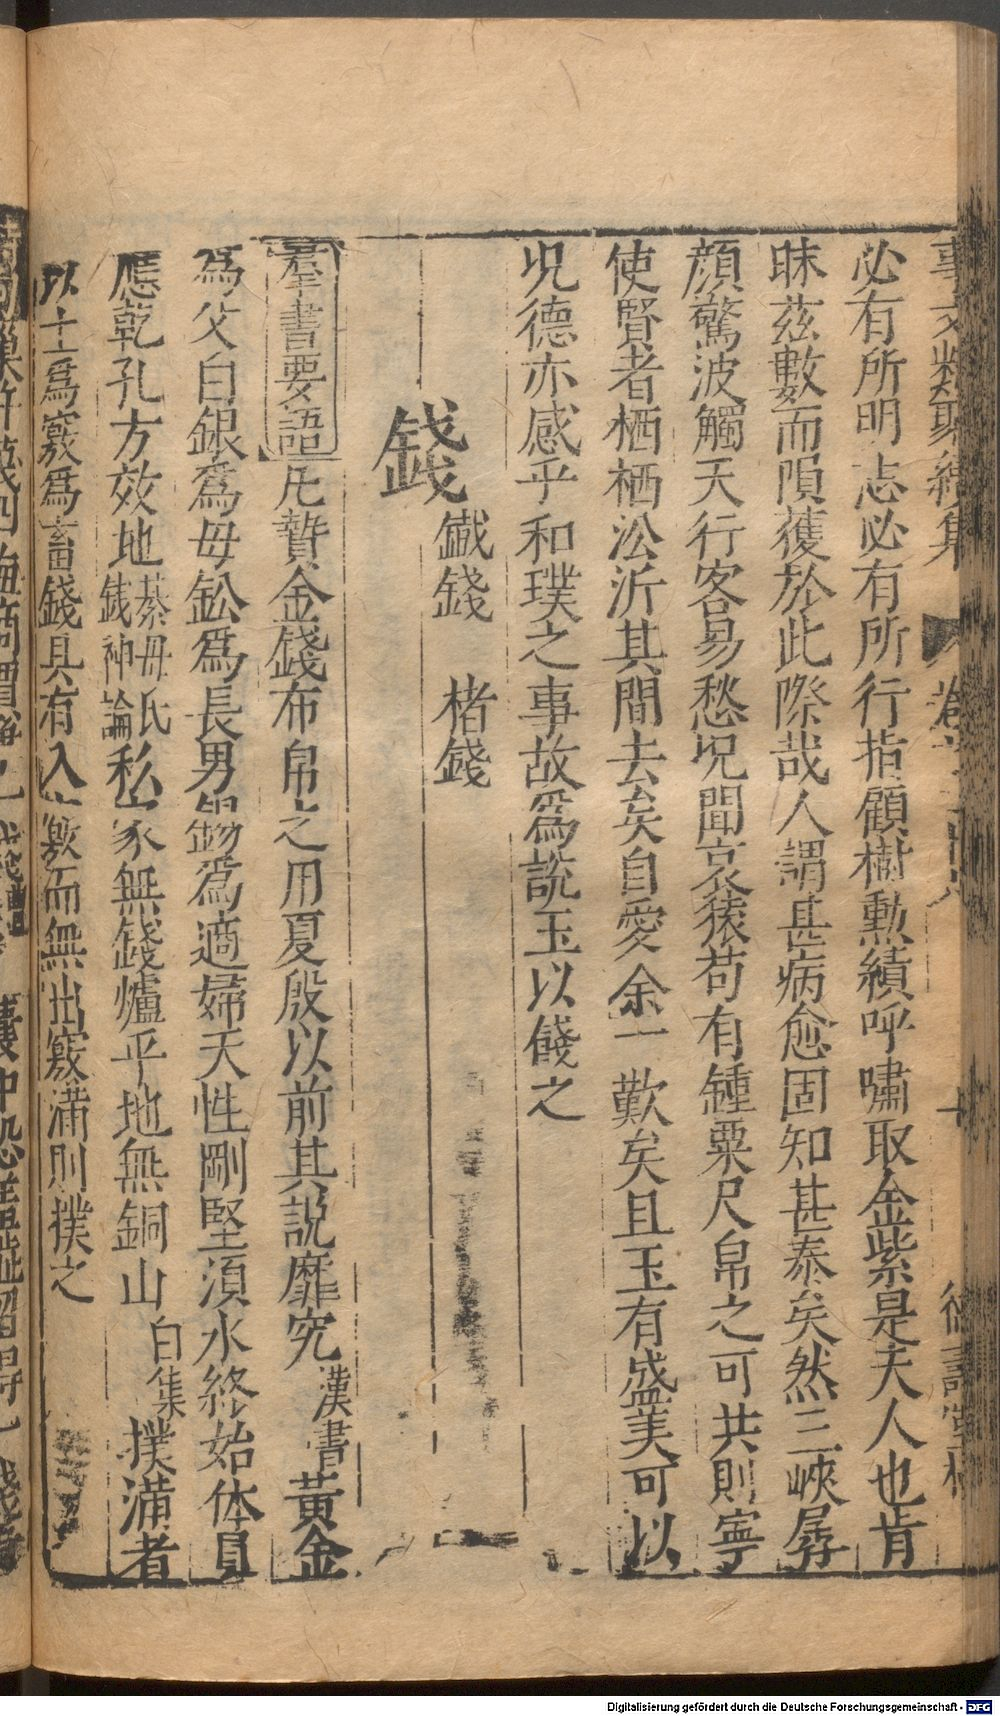 事文類聚續集 卷
必有所明志必有所行指顧樹勲績呼嘯取金紫是夫人也肯
昧茲數而隕穫於此際哉人謂甚病愈固知甚泰矣然三峽孱
顔驚波觸天行客易愁况聞哀猿苟有鍾粟尺帛之可共則寧
使賢者栖栖沿泝其間去矣自愛余一歎矣且玉有盛美可以
况德亦感乎和璞之事故爲説玉以餞之
錢 鐵錢 楮錢
羣書要語 凡贄金錢布帛之用夏殷以前其説靡究 漢書 黃金
爲父白銀爲母鈆爲長男錫爲適婦天性剛堅湏水終始体員
應乾孔方效地 綦毋氏錢神論 私家無錢爐平地無銅山 白集 撲滿者
以土爲竅爲畜錢具有入竅而無出竅滿則撲之
Digitalisierung gefördert durch die Deutsche Forschungsgemeinschaft - DFG